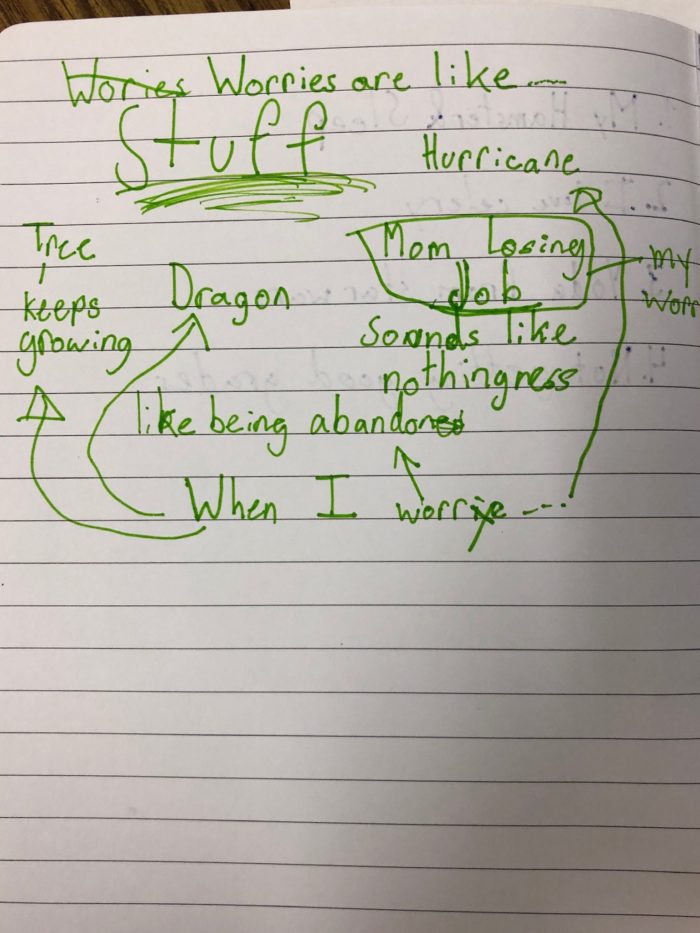 Wories Worries are like ....
Stuff
Hurricane
Tree
keeps
growing
Dragon
Mom Losing
Job
my
worr
Sounds like
nothingness
like being abandoned
When I worrie ....